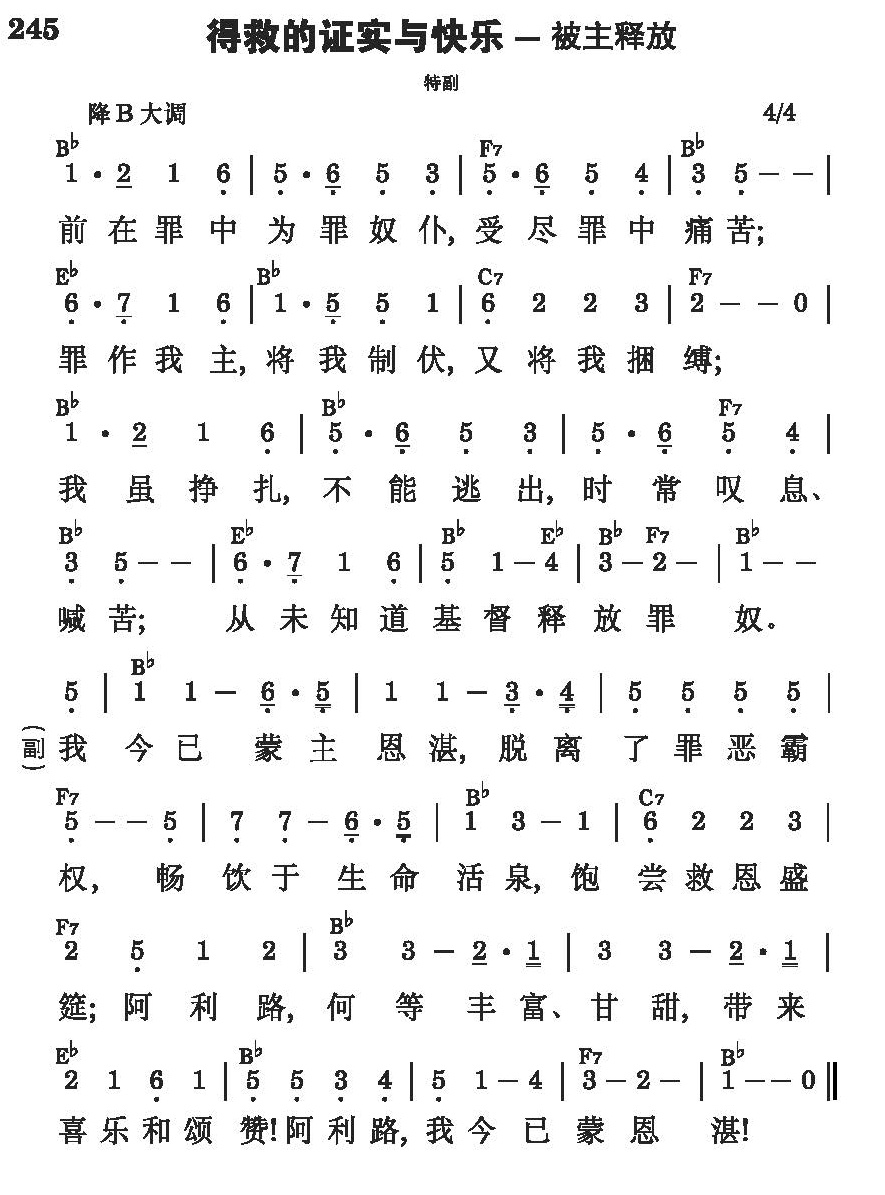 245
得救的证实与快乐 — 被主释放
特副
降 B 大调 4/4
B♭ F7 B♭
1 · 2 1 6 | 5 · 6 5 3 | 5 · 6 5 4 | 3 5 — — |
前 在 罪 中 为 罪 奴 仆, 受 尽 罪 中 痛 苦;
E♭ B♭ C7 F7
6 · 7 1 6 | 1 · 5 5 1 | 6 2 2 3 | 2 — — 0 |
罪 作 我 主, 将 我 制 伏, 又 将 我 捆 缚;
B♭ B♭ F7
1 · 2 1 6 | 5 · 6 5 3 | 5 · 6 5 4 |
我 虽 挣 扎, 不 能 逃 出, 时 常 叹 息、
B♭ E♭ B♭ E♭ B♭ F7 B♭
3 5 — — | 6 · 7 1 6 | 5 1 — 4 | 3 — 2 — | 1 — —
喊 苦; 从 未 知 道 基 督 释 放 罪 奴。
B♭
5 | 1 1 — 6 · 5 | 1 1 — 3 · 4 | 5 5 5 5 |
(副) 我 今 已 蒙 主 恩 湛, 脱 离 了 罪 恶 霸
F7 B♭ C7
5 — — 5 | 7 7 — 6 · 5 | 1 3 — 1 | 6 2 2 3 |
权, 畅 饮 于 生 命 活 泉, 饱 尝 救 恩 盛
F7 B♭
2 5 1 2 | 3 3 — 2 · 1 | 3 3 — 2 · 1 |
筵; 阿 利 路, 何 等 丰 富、 甘 甜, 带 来
E♭ B♭ F7 B♭
2 1 6 1 | 5 5 3 4 | 5 1 — 4 | 3 — 2 — | 1 — — 0 ‖
喜 乐 和 颂 赞! 阿 利 路, 我 今 已 蒙 恩 湛!